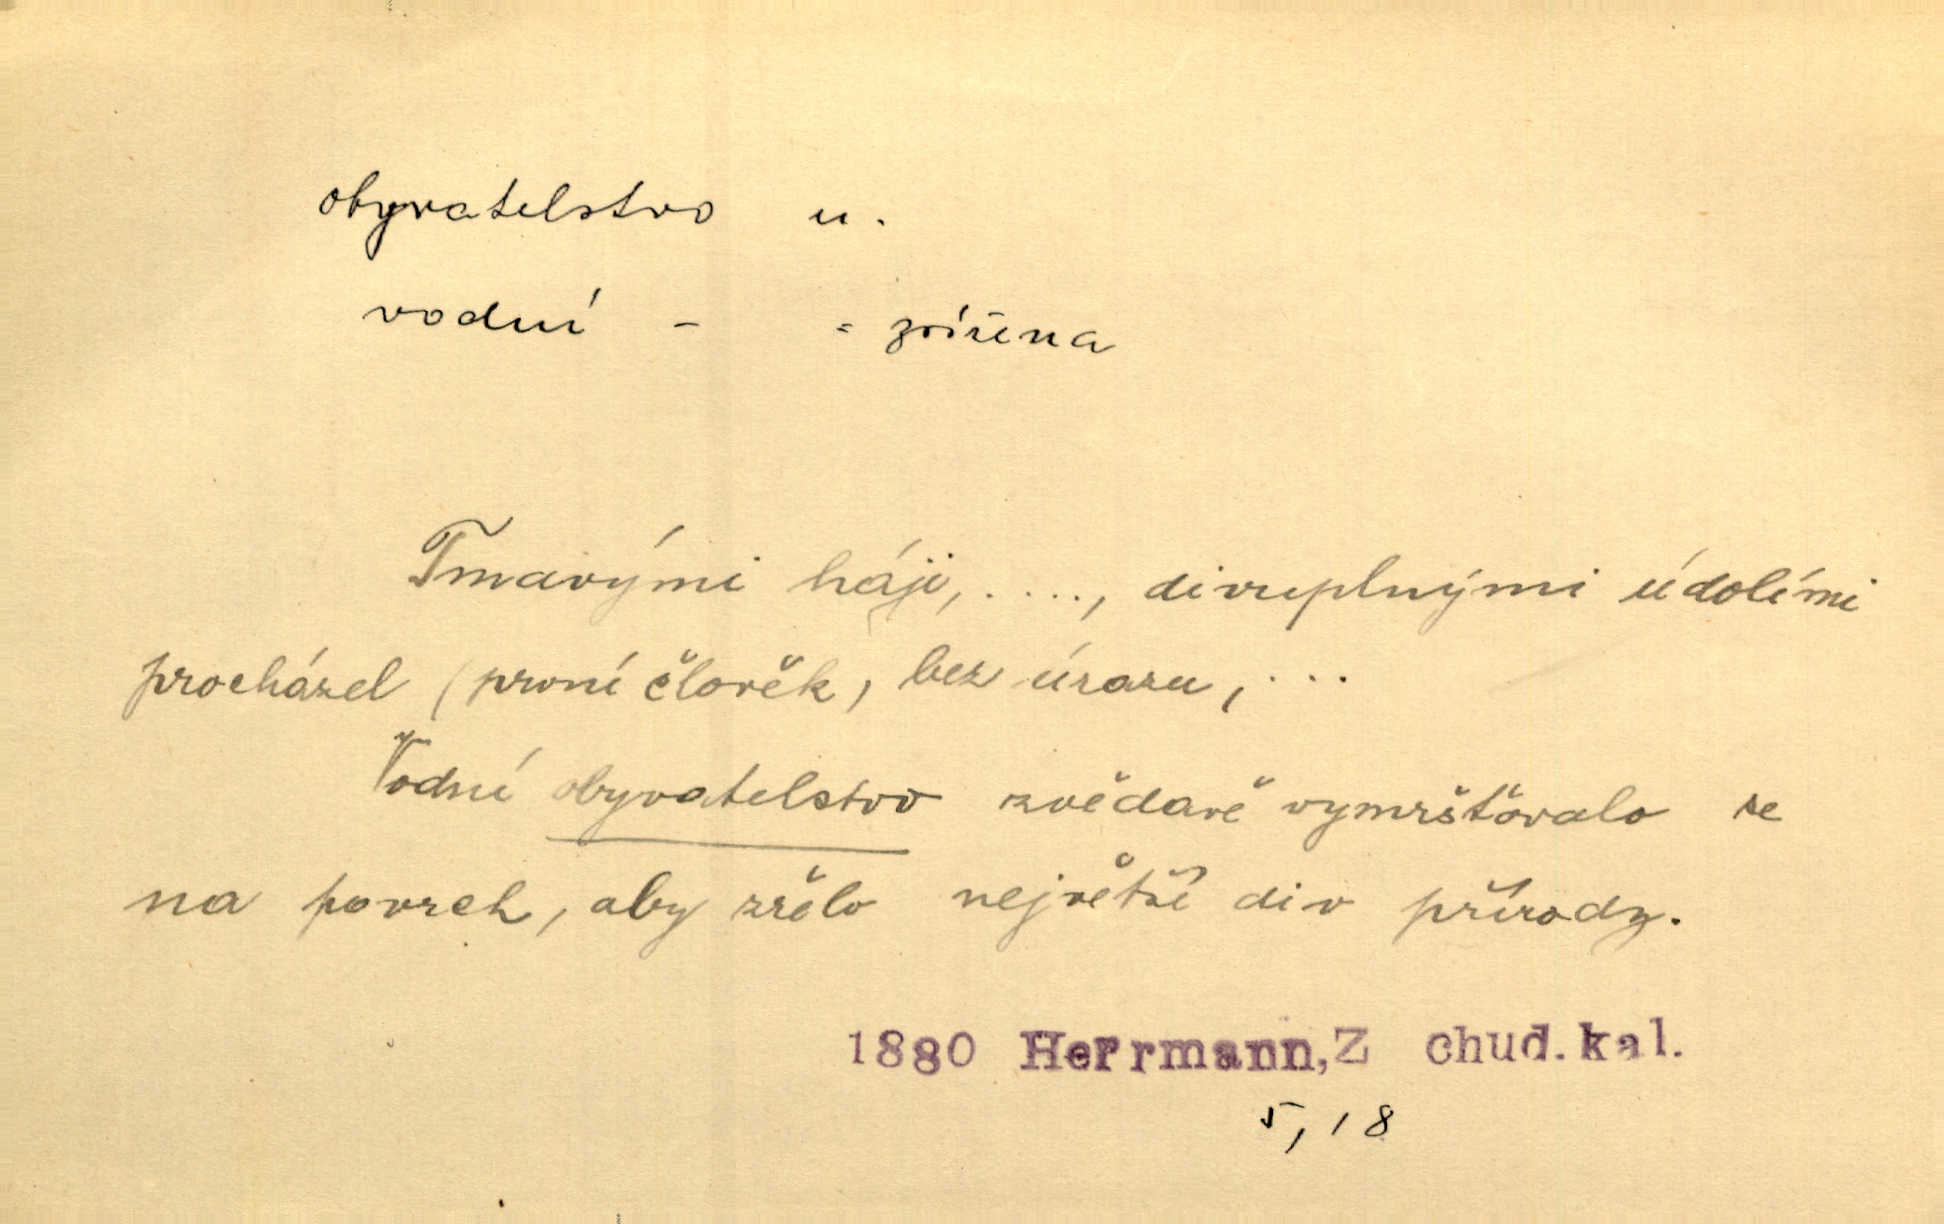 obyvatelstvo u.
vodní - = zvířena
Tmavými háji, ...., divuplnými údolími
procházel (první člověk) bez úrazu, ...
Vodní obyvatelstvo zvědavě vymršťovalo se
na povrch, aby zřelo největší div přírody.
1880 Herrmann,Z chud.kal.
5, 18